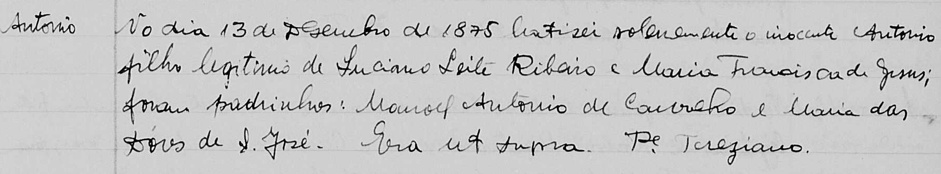 Antonio No dia 13 de Dezembro de 1875 batizei solenemente o inocente Antonio
filho legitimo de Luciano Leite Ribeiro e Maria Francisca de Jesus;
foram padrinhos: Manoel Antonio de Carvalho e Maria das
Dôres de S. José. Era ut supra. Pe. Tereziano.